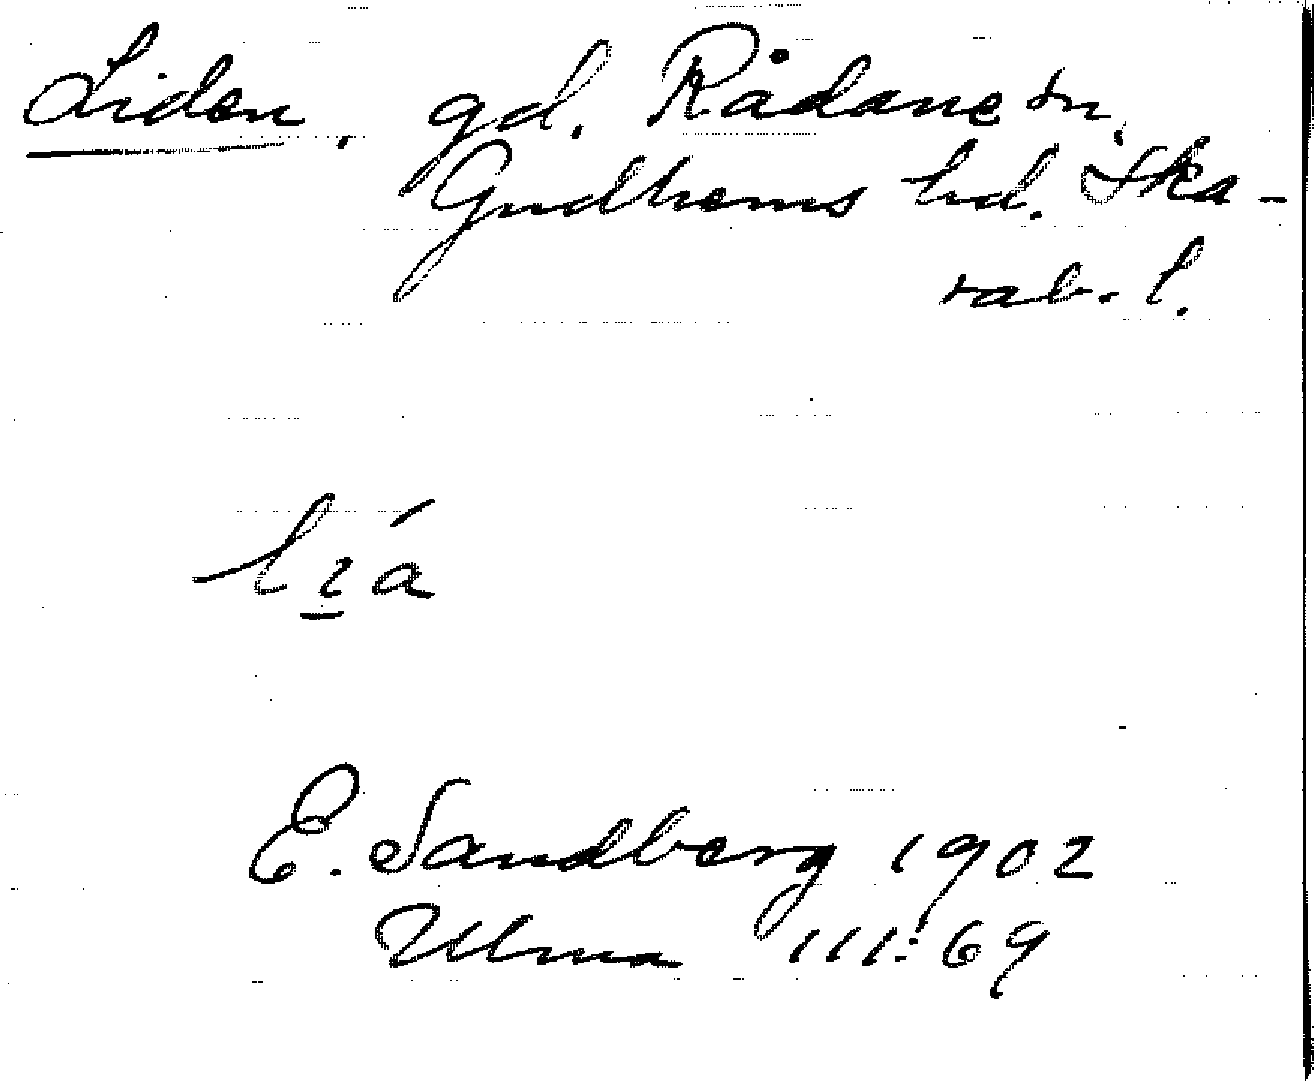 Liden, gd. Rådene sn.
Gudhems hd. Ska-
rab. l.
lı̱á
E. Sandberg 1902
Ulma 111:69